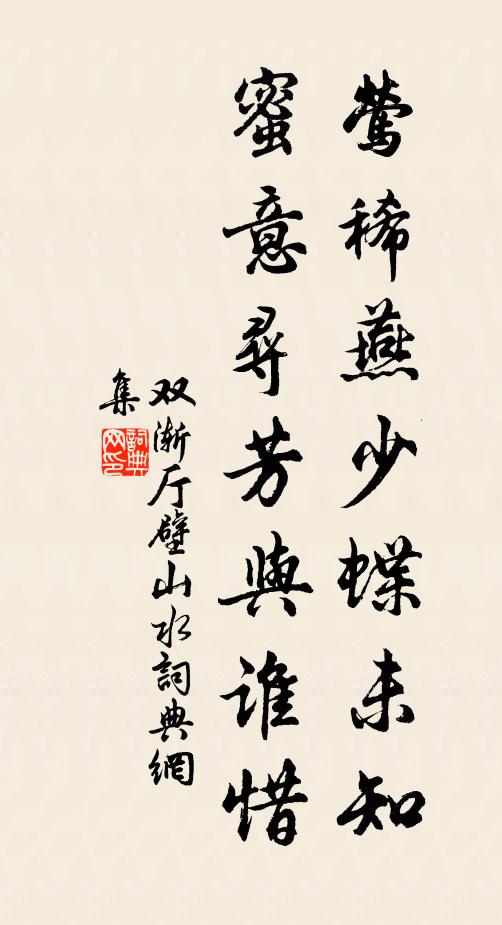 鶯稀燕少蝶未知
蜜意尋芳與谁惜
双渐厅壁山水詞典網
集
詞典
网印